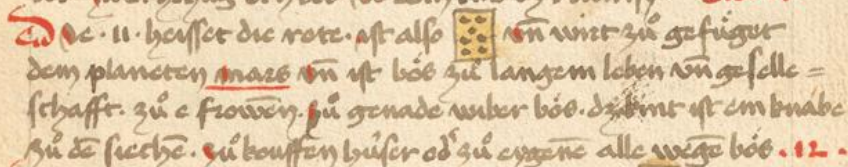 Die · 11 · heisset die rote · ist also vn̄ wirt zuͦ gefuͤget
dem planeten mars vn̄ ist boͤs zuͦ langem leben vn̄ geselle=
schafft · zuͦ e frowen̄ · zuͦ genade wiber boͤs · dz kint ist ein knabe
zuͦ dē siechē · zuͦ kouffen huͤser od' zuͦ eygenē alle wegē boͤs · 12 ·